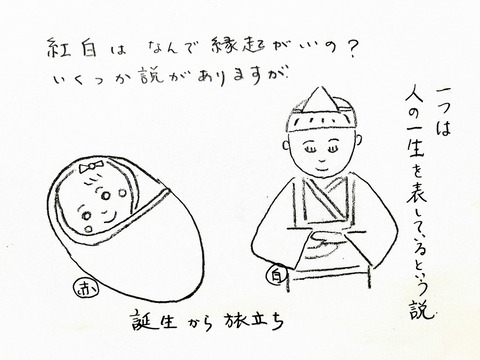 紅白は なんで 縁起がいいの？
いくつか説がありますが
一つは
人の一生を表しているという説
赤
白
誕生から旅立ち